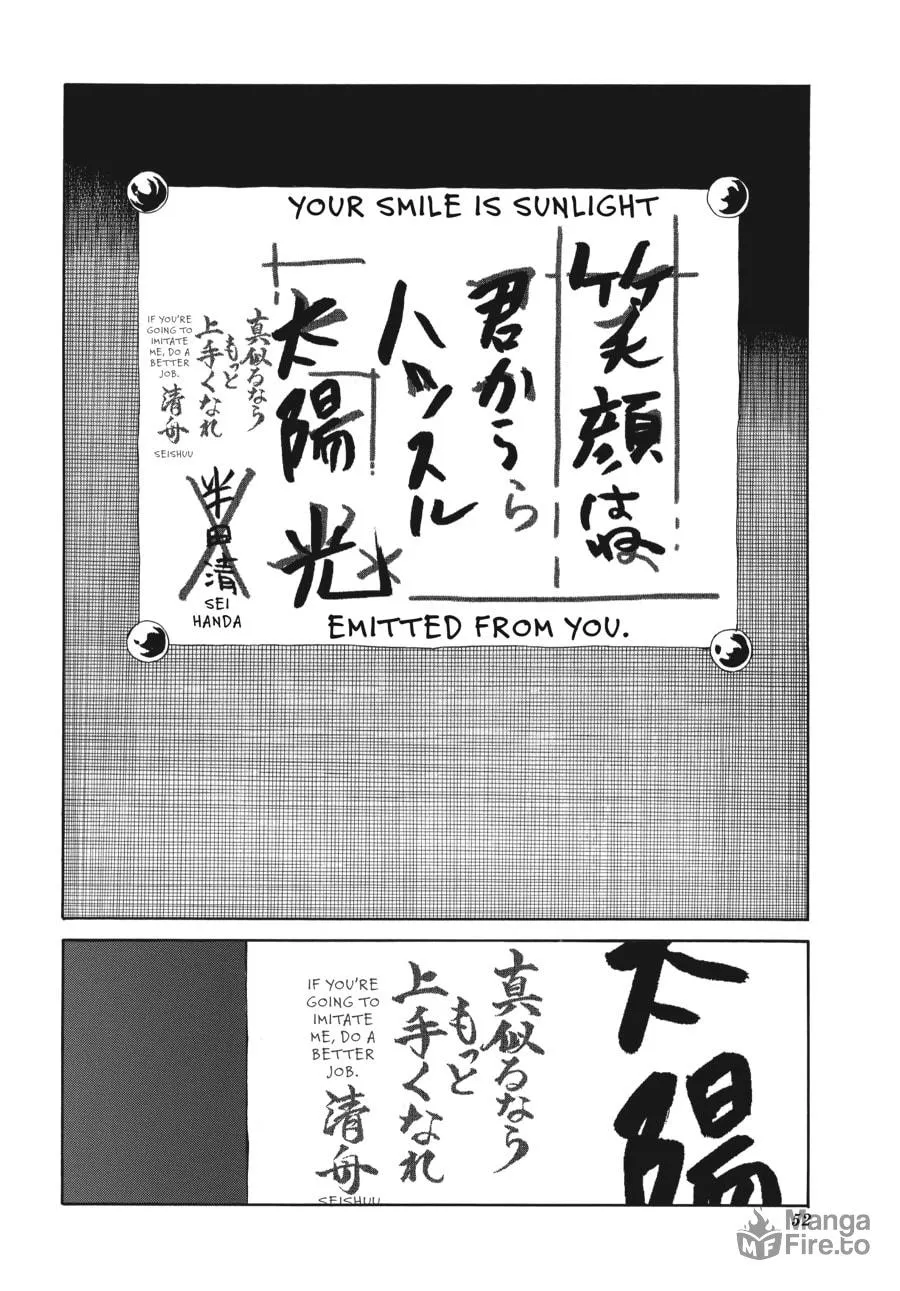 YOUR SMILE IS SUNLIGHT
笑顔はね
君から
ハッスル
太陽光
真似るなら
もっと
上手くなれ
清舟
IF YOU'RE
GOING TO
IMITATE
ME, DO A
BETTER
JOB.
SEISHUU
半田清
SEI
HANDA
EMITTED FROM YOU.
太
陽
真似るなら
もっと
上手くなれ
清舟
IF YOU'RE
GOING TO
IMITATE
ME, DO A
BETTER
JOB.
SEISHUU
52
Manga
Fire.to
MF